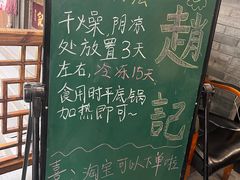 干燥,阴凉
处放置3天
左右,冷冻15天
食用时平底锅
加热即可~
趙
記
淘宝可以下单啦